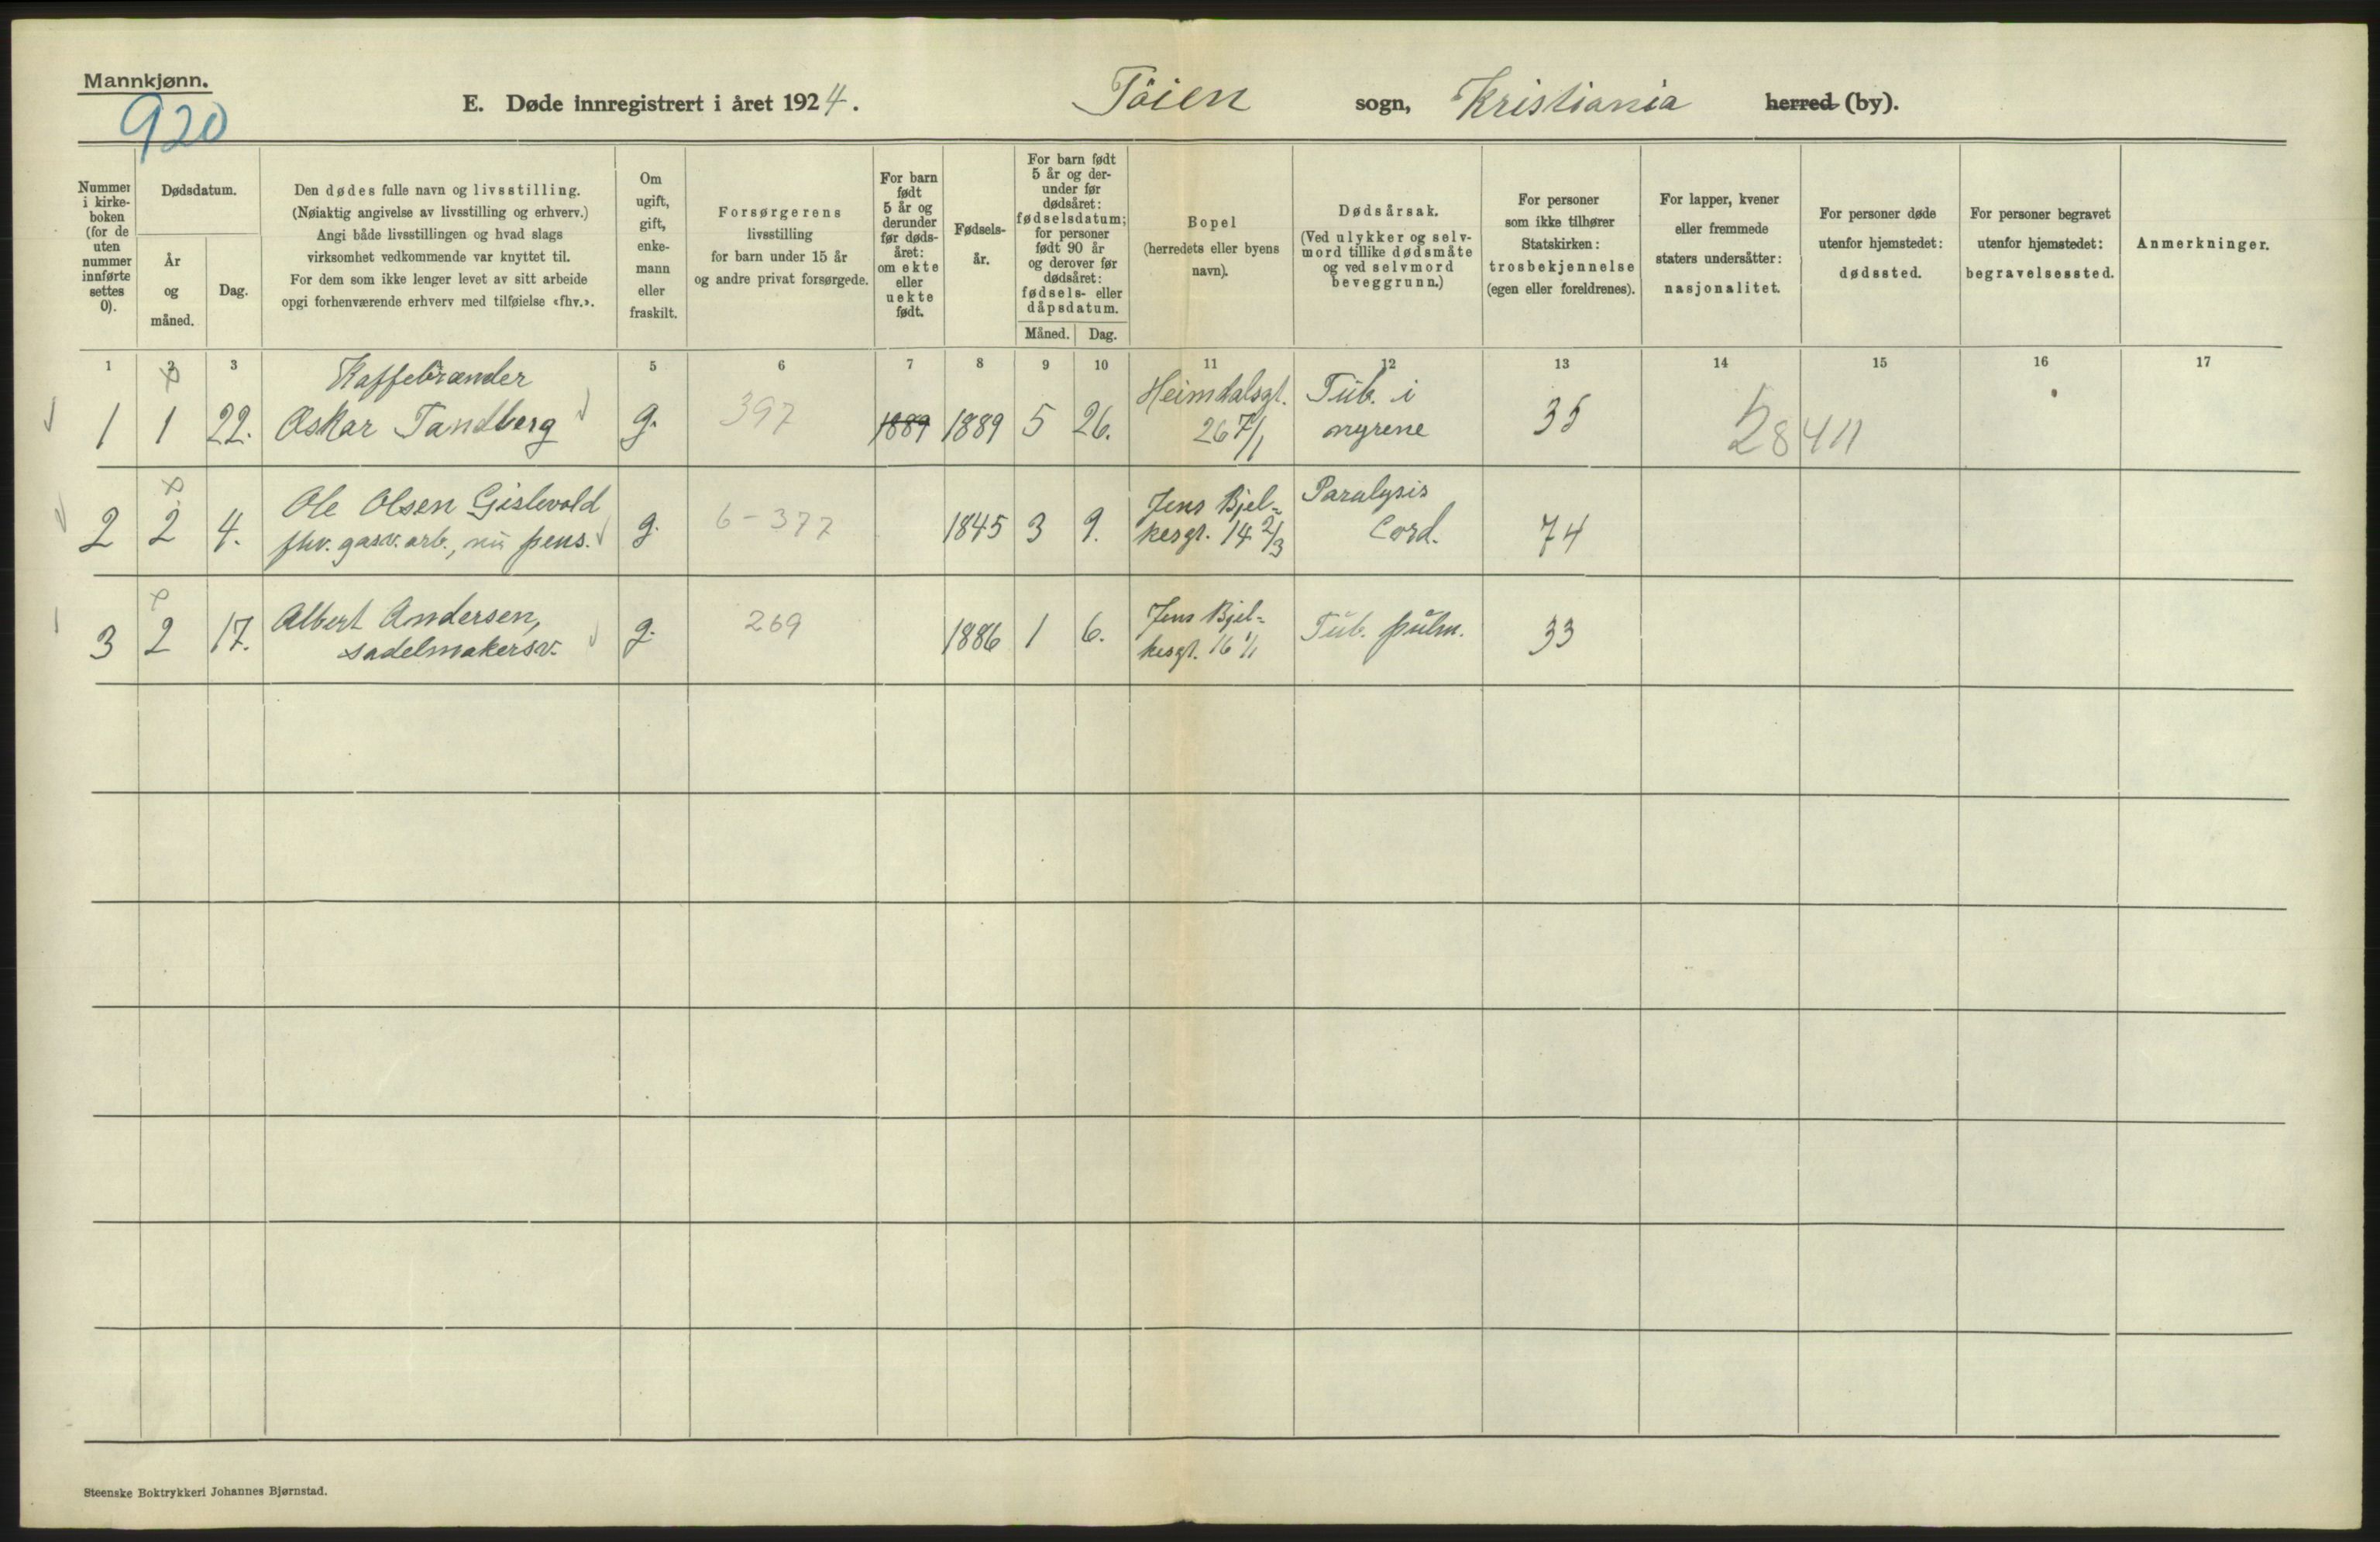 Mannkjønn.
920
E. Døde innregistrert i året 1924.
Töien sogn, Kristiania herred (by).
Nummer i kirke-boken (for de uten nummer innførte settes 0).
Dødsdatum.
År og måned.
Dag.
Den dødes fulle navn og livsstilling.
(Nøiaktig angivelse av livsstilling og erhverv.)
Angi både livsstillingen og hvad slags
virksomhet vedkommende var knyttet til.
For dem som ikke lenger levet av sitt arbeide
opgi forhenværende erhverv med tilføielse «fhv.».
Om ugift, gift, enke-mann eller fraskilt.
Forsørgerens
livsstilling
for barn under 15 år
og andre privat forsørgede.
For barn født 5 år og derunder før døds-året: om ekte eller uekte født.
Fødsels-år.
For barn født 5 år og der-under før dødsåret: fødselsdatum; for personer født 90 år og derover før dødsåret: fødsels- eller dåpsdatum.
Måned. Dag.
Bopel
(herredets eller byens
navn).
Dødsårsak.
(Ved ulykker og selv-
mord tillike dødsmåte
og ved selvmord
beveggrunn.)
For personer
som ikke tilhører
Statskirken:
trosbekjennelse
(egen eller foreldrenes).
For lapper, kvener
eller fremmede
staters undersåtter:
nasjonalitet.
For personer døde
utenfor hjemstedet:
dødssted.
For personer begravet
utenfor hjemstedet:
begravelsessted.
Anmerkninger.
1 2 3 5 6 7 8 9 10 11 12 13 14 15 16 17
Kaffebrænder Heimdalsgt. Tub. i
1 1 22. Oskar Tandberg g. 397 1889 1889 5 26. 26 7/1 nyrene 35 28411
Ole Olsen Gislevold Jens Bjel= Paralysis
2 2 4. fhv. gasv. arb., nu pens. g. 6-377 1845 3 9. kesgt. 14 2/3 Cord. 74
Albert Andersen, Jens Bjel=
3 2 17. sadelmakersv. g. 269 1886 1 6. kesgt. 16 1/1 Tub. pulm. 33
Steenske Boktrykkeri Johannes Bjørnstad.